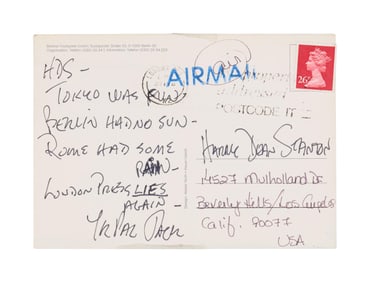 HDS –
TOKYO WAS FUN
BERLIN HAD NO SUN –
ROME HAD SOME
RAIN –
LONDON PRESS LIES
AGAIN –
YR PAL JACK
air
AIRMAIL
POSTCODE IT
26P
Harry Dean Stanton
14527 Mulholland Dr
Beverly Hills/Los Angeles
Calif. 90077
USA